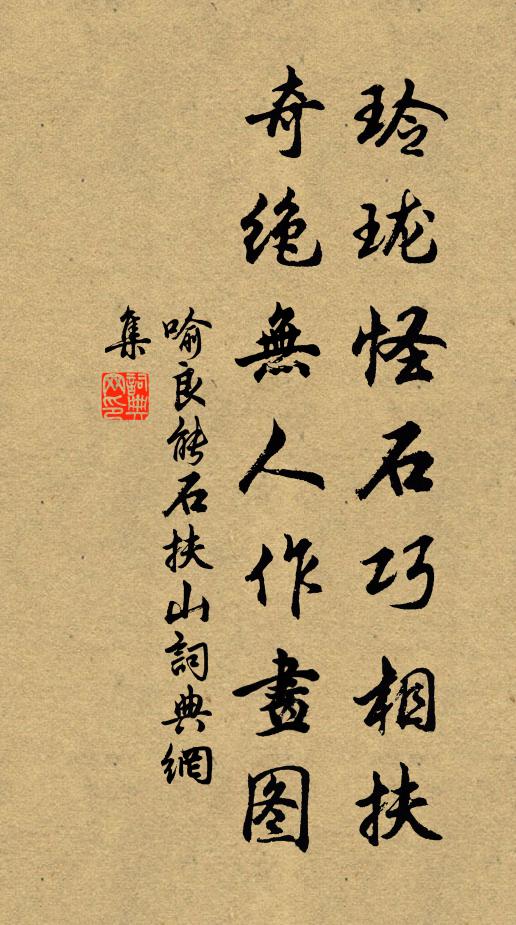 玲珑怪石巧相扶
奇绝無人作畫图
喻良能石扶山詞典網
集
詞典網印